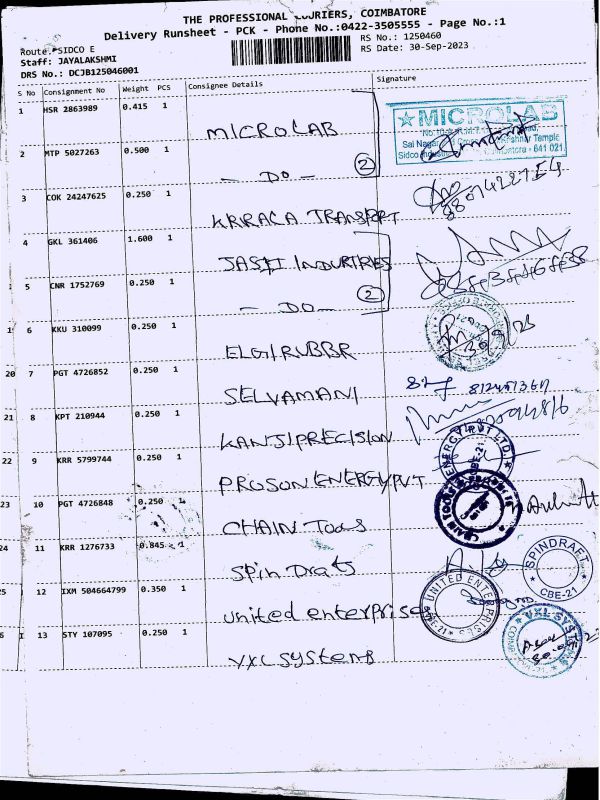 THE PROFESSIONAL COURIERS, COIMBATORE
Delivery Runsheet - PCK - Phone No.:0422-3505555 - Page No.:1
Route: SIDCO E
RS No.: 1250460
Staff: JAYALAKSHMI
RS Date: 30-Sep-2023
DRS No.: DCJB125046001
S No Consignment No Weight PCS Consignee Details Signature
1 HSR 2863989 0.415 1
MICROLAB
★ MICROLAB
Sai Nagar
Temple
Sidco Industrial
- 641 021
2 MTP 5027263 0.500 1
- DO - 2
3 COK 24247625 0.250 1
KRRACA TRANSPORT
4 GKL 361406 1.600 1
JASTI INDURTRIES
5 CNR 1752769 0.250 1
- DO - 2
1 6 KKU 310099 0.250 1
ELGI RUBBR
30/9/23
20 7 PGT 4726852 0.250 1
SELVAMANI
21 8 KPT 210944 0.250 1
KANJI PRECISION
22 9 KRR 5799744 0.250 1
PROSON ENERGY PVT
ENERGY PVT LTD.
CBE-21
23 10 PGT 4726848 0.250 1
CHAIN Tools
CHAIN TOOLS
24 11 KRR 1276733 0.845 1
Spin Drats
SPINDRAFT
CBE-21
25 12 IXM 504664799 0.350 1
United enterprises
UNITED ENTERPRISES
CBE-21
26 13 STY 107095 0.250 1
VXL Systems
VXL SYSTEMS